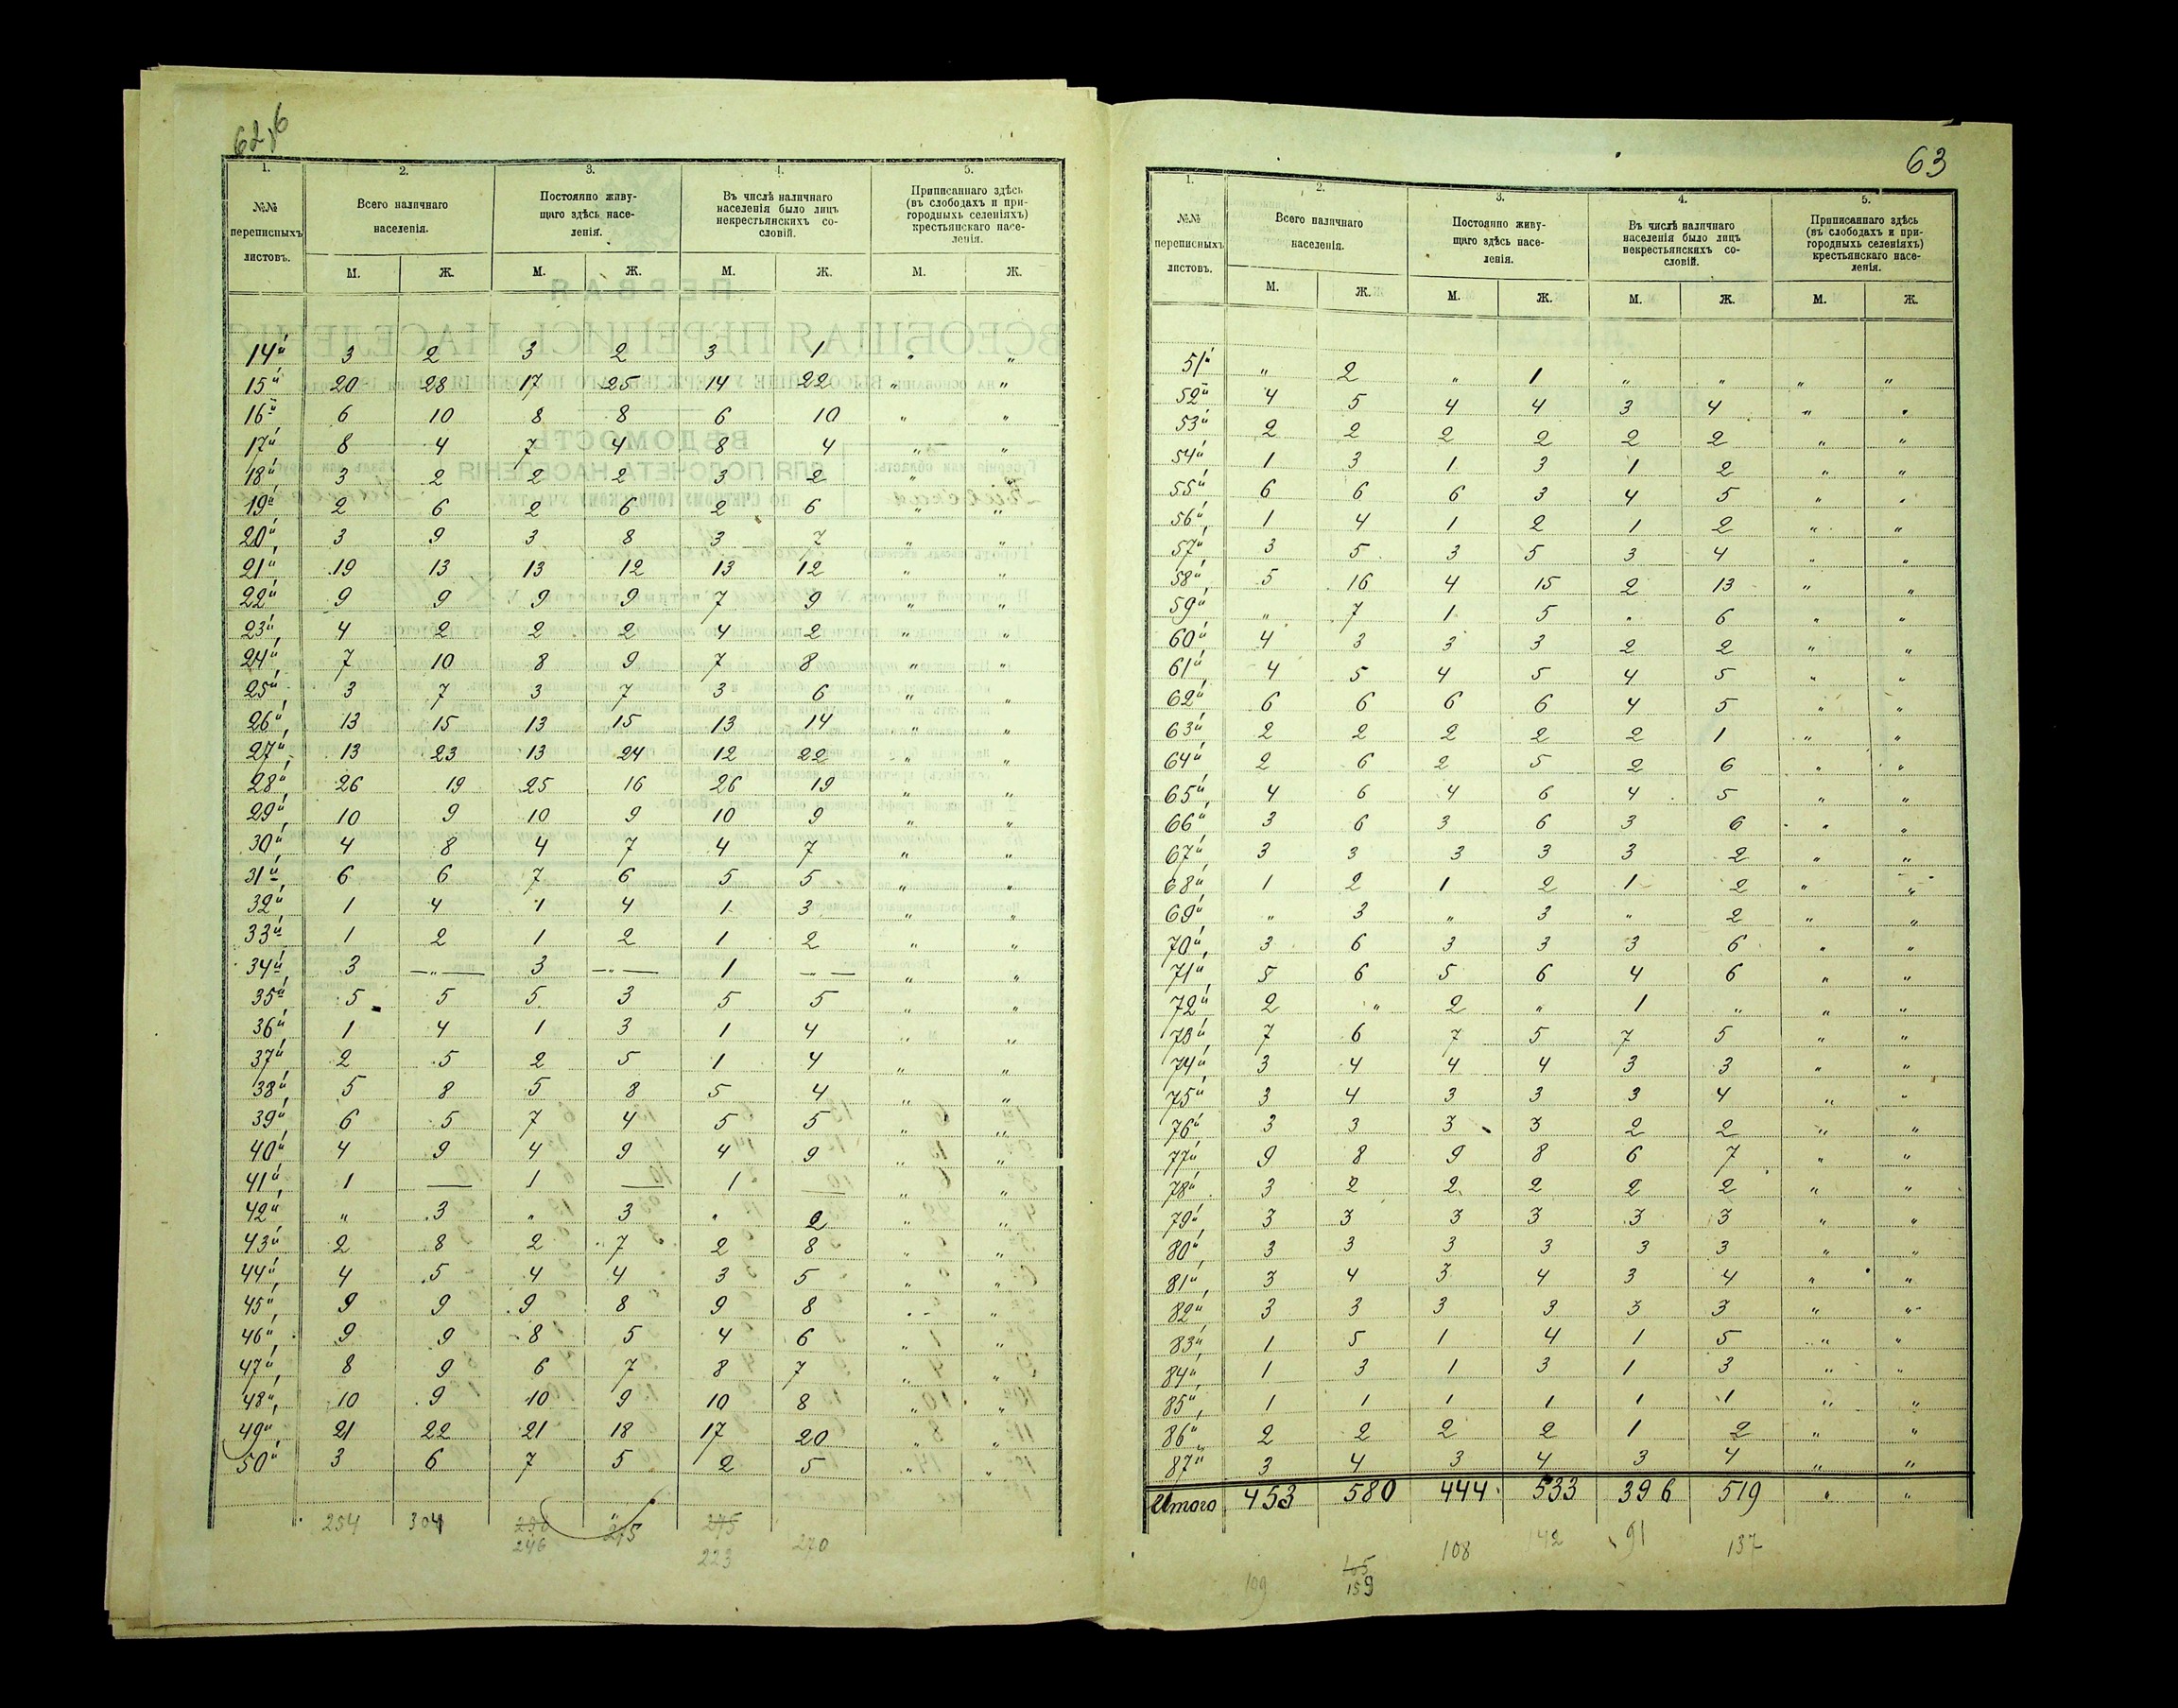 62,б
1. 2. 3. 4. 5.
№№ переписныхъ листовъ. Всего наличнаго населенія. Постоянно живущаго здѣсь населенія. Въ числѣ наличнаго населенія было лицъ некрестьянскихъ сословій. Приписаннаго здѣсь (въ слободахъ и пригородныхъ селеніяхъ) крестьянскаго населенія.
М. Ж. М. Ж. М. Ж. М. Ж.
14й 3 2 3 2 3 1 " "
15й 20 28 17 25 14 22 " "
16й 6 10 8 8 6 10 " "
17й 8 4 7 4 8 4 " "
18й 3 2 2 2 3 2 " "
19й 2 6 2 6 2 6 " "
20й 3 9 3 8 3 7 " "
21й 19 13 13 12 13 12 " "
22й 9 9 9 9 7 9 " "
23й 4 2 2 2 4 2 " "
24й 7 10 8 9 7 8 " "
25й 3 7 3 7 3 6 " "
26й 13 15 13 15 13 14 " "
27й 13 23 13 24 12 22 " "
28й 26 19 25 16 26 19 " "
29й 10 9 10 9 10 9 " "
30й 4 8 4 7 4 7 " "
31й 6 6 7 6 5 5 " "
32й 1 4 1 4 1 3 " "
33й 1 2 1 2 1 2 " "
34й 3 —"— 3 —"— 1 —"— " "
35й 5 5 5 3 5 5 " "
36й 1 4 1 3 1 4 " "
37й 2 5 2 5 1 4 " "
38й 5 8 5 8 5 4 " "
39й 6 5 7 4 5 5 " "
40й 4 9 4 9 4 9 " "
41й 1 — 1 — 1 — " "
42й " 3 " 3 " 2 " "
43й 2 8 2 7 2 8 " "
44й 4 5 4 4 3 5 " "
45й 9 9 9 8 9 8 " "
46й 9 9 8 5 4 6 " "
47й 8 9 6 7 8 7 " "
48й 10 9 10 9 10 8 " "
49й 21 22 21 18 17 20 " "
50й 3 6 7 5 2 5 " "
254 304 246 215 223 270
63
1. 2. 3. 4. 5.
№№ переписныхъ листовъ. Всего наличнаго населенія. Постоянно живущаго здѣсь населенія. Въ числѣ наличнаго населенія было лицъ некрестьянскихъ сословій. Приписаннаго здѣсь (въ слободахъ и пригородныхъ селеніяхъ) крестьянскаго населенія.
М. Ж. М. Ж. М. Ж. М. Ж.
51й " 2 " 1 " " " "
52й 4 5 4 4 3 4 " "
53й 2 2 2 2 2 2 " "
54й 1 3 1 3 1 2 " "
55й 6 6 6 3 4 5 " "
56й 1 4 1 2 1 2 " "
57й 3 5 3 5 3 4 " "
58й 5 16 4 15 2 13 " "
59й " 7 1 5 " 6 " "
60й 4 3 3 3 2 2 " "
61й 4 5 4 5 4 5 " "
62й 6 6 6 6 4 5 " "
63й 2 2 2 2 2 1 " "
64й 2 6 2 5 2 6 " "
65й 4 6 4 6 4 5 " "
66й 3 6 3 6 3 6 " "
67й 3 3 3 3 3 2 " "
68й 1 2 1 2 1 2 " "
69й " 3 " 3 " 2 " "
70й 3 6 3 3 3 6 " "
71й 5 6 5 6 4 6 " "
72й 2 " 2 " 1 " " "
73й 7 6 7 5 7 5 " "
74й 3 4 4 4 3 3 " "
75й 3 4 3 3 3 4 " "
76й 3 3 3 3 2 2 " "
77й 9 8 9 8 6 7 " "
78й 3 2 2 2 2 2 " "
79й 3 3 3 3 3 3 " "
80й 3 3 3 3 3 3 " "
81й 3 4 3 4 3 4 " "
82й 3 3 3 3 3 3 " "
83й 1 5 1 4 1 5 " "
84й 1 3 1 3 1 3 " "
85й 1 1 1 1 1 1 " "
86й 2 2 2 2 1 2 " "
87й 3 4 3 4 3 4 " "
Итого 453 580 444 533 396 519 " "
108 142 91 137
199 165
159